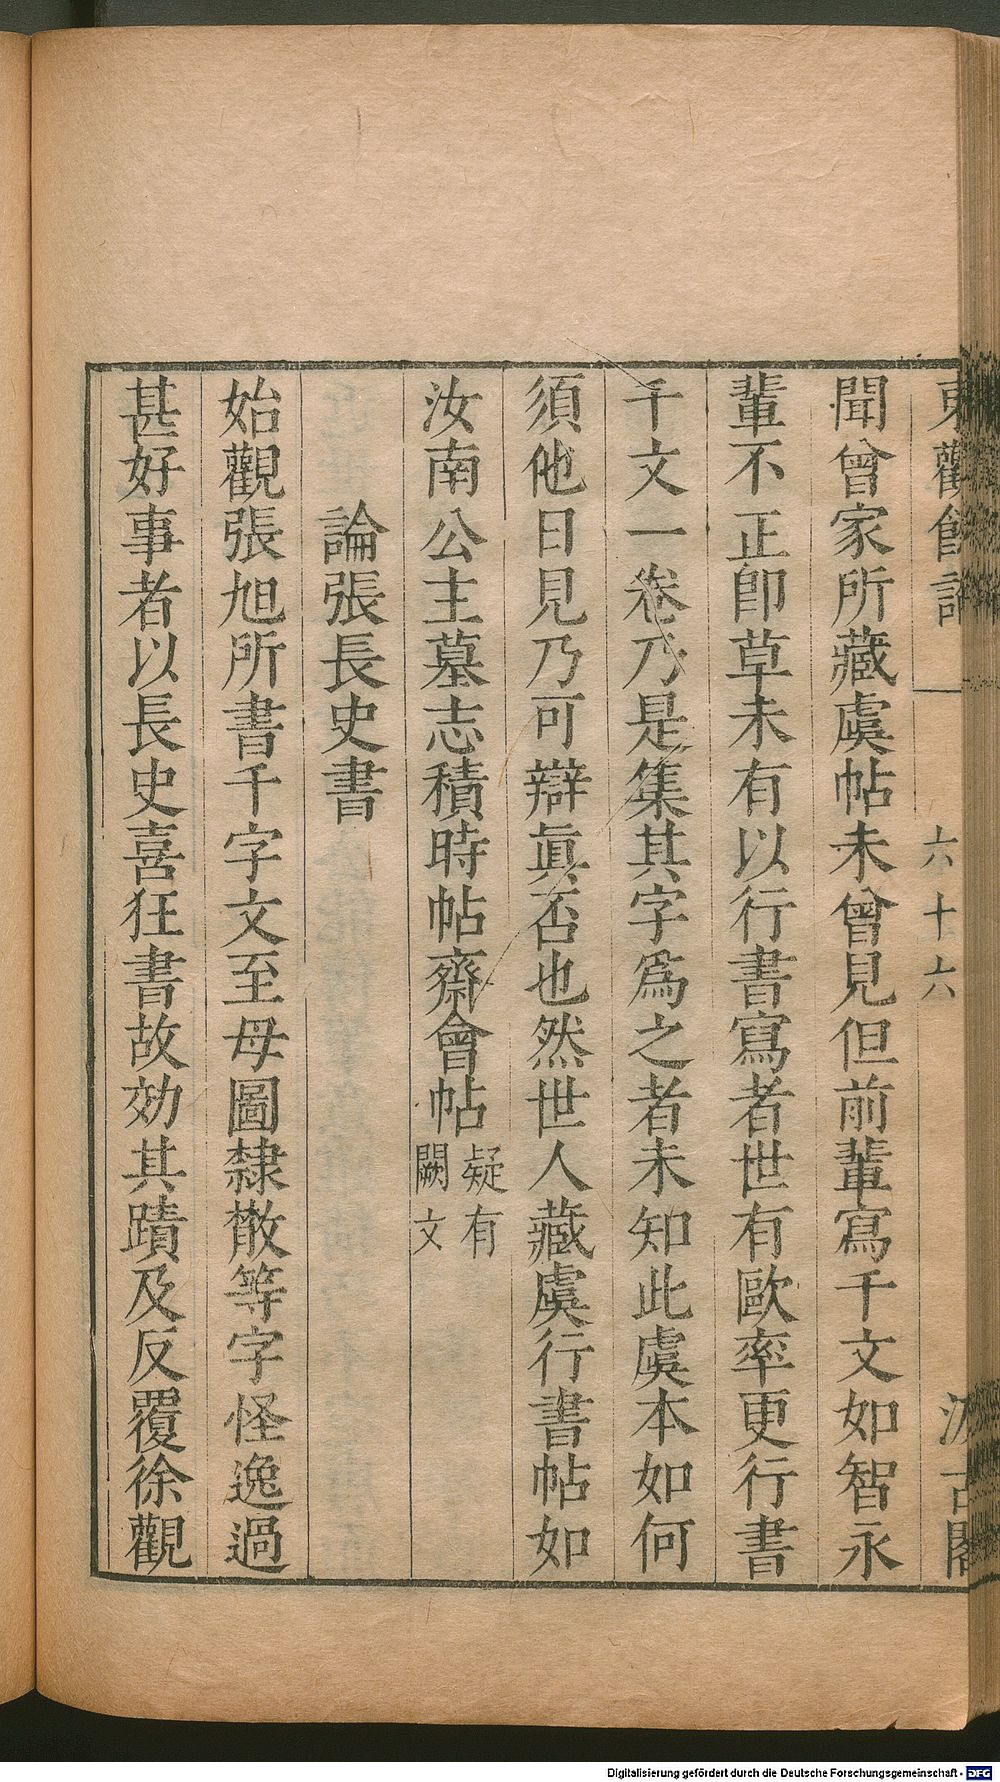 東觀餘論
六十六
汲古閣
聞曾家所藏虞帖未曾見但前輩寫千文如智永
輩不正卽草未有以行書寫者世有歐率更行書
千文一卷乃是集其字爲之者未知此虞本如何
須他日見乃可辯眞否也然世人藏虞行書帖如
汝南公主墓志積時帖齋會帖疑有闕文
論張長史書
始觀張旭所書千字文至母圖隸散等字怪逸過
甚好事者以長史喜狂書故効其蹟及反覆徐觀
Digitalisierung gefördert durch die Deutsche Forschungsgemeinschaft - DFG